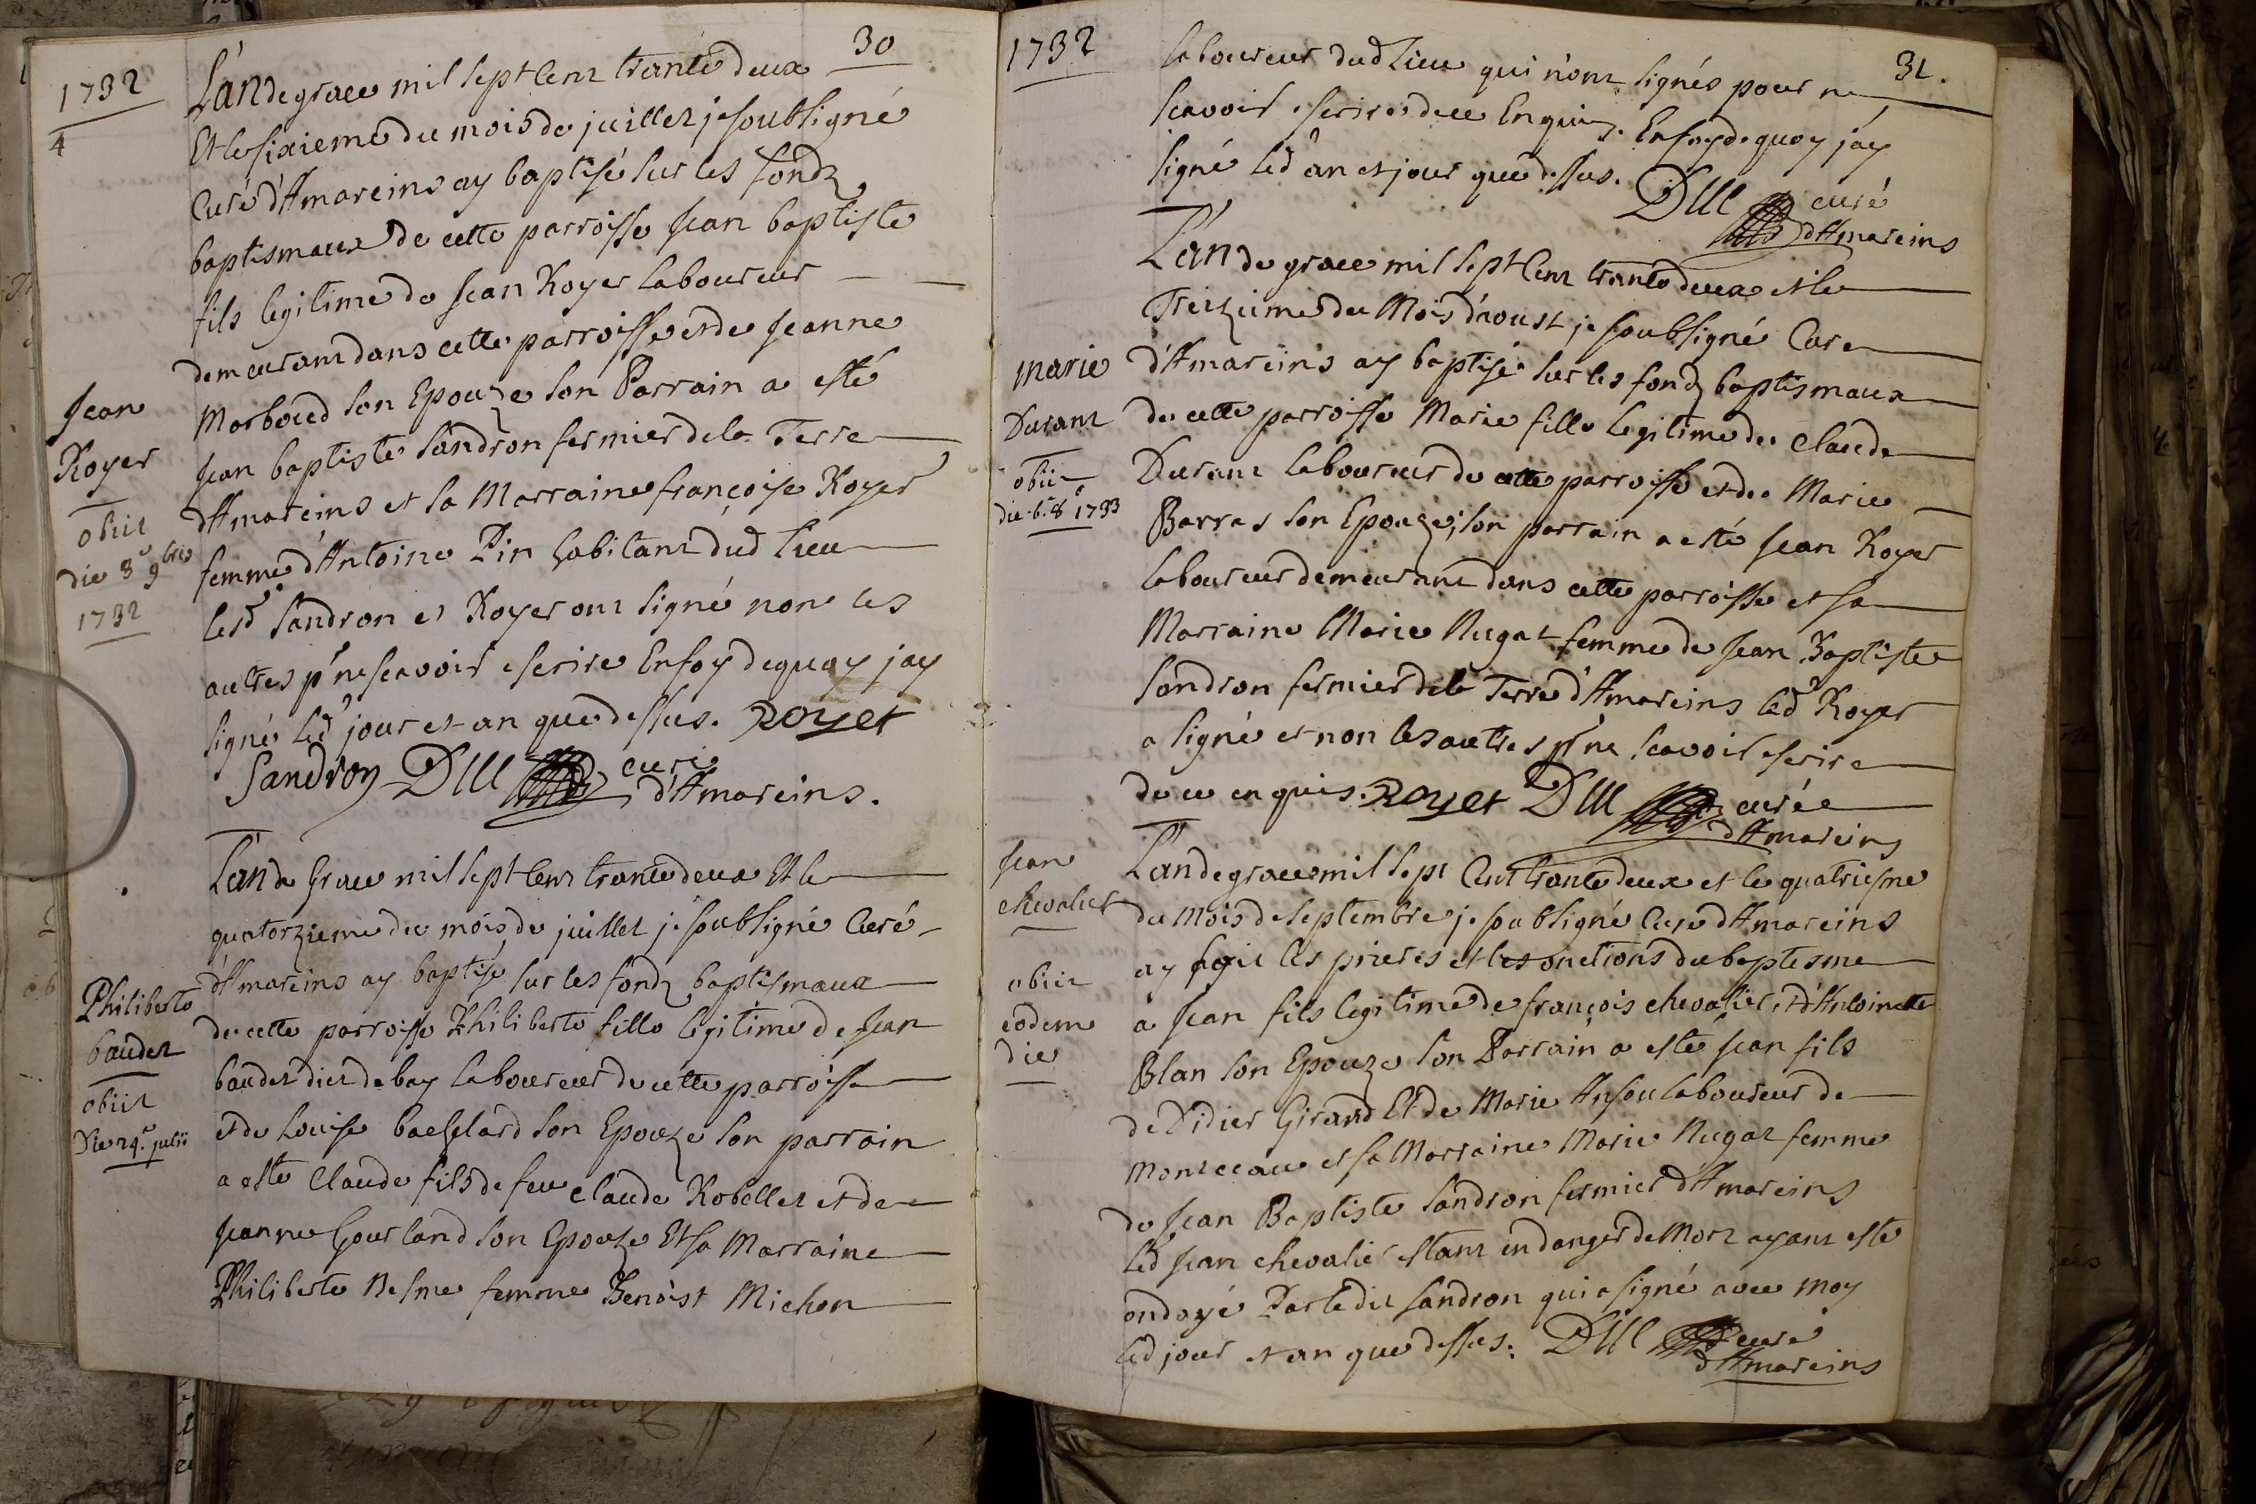 30
1732
4
L'an de grace mil sept Cent trante deux
Et le sixieme du mois de juillet je soubsigné
Curé d'Amareins ay baptisé sur les fondz
baptismaux de cette parroisse Jean baptiste
fils legitime de Jean Royer laboureur
demeurant dans cette parroisse et de Jeanne
Marboud son Epouze son Parrain a esté
Jean baptiste Sandron fermier de la Terre
d'Amareins et sa Marraine françoise Royer
femme d'Antoine Pin habitant dud lieu
lesd Sandron et Royer ont signé non les
autres pr ne scavoir escrire Enfoy dequoy jay
signé led jour et an que dessus. Royer
Sandron DM curé
d'Amareins.
Jean
Royer
obiit
die 8e 9bris
1732
L'an de Grace mil sept Cent trante deux Et le
quatorzieme du mois de juillet je soubsigné Curé
d'Amareins ay baptisé sur les fondz baptismaux
de cette parroisse Philiberte fille legitime de Jean
baudet dict de bay laboureur de cette parroisse
et de Louise bachelard son Epouze son parrain
a esté Claude fils de feu Claude Robellet et de
Jeanne Gourland son Epouze Et sa Marraine
Philiberte Besme femme Benoist Michon
Philiberte
baudet
obiit
Die 24e julii
1732
31.
laboureur dud Lieu qui n'ont signés pour ne
scavoir escrire de ce Enquiz. En foy de quoy j'ay
signé led an et jour que dessus. DM curé
d'Amareins
L'an de grace mil sept Cent trante deux et le
Treizieme du Mois d'aoust je soubsigné Cure
d'Amareins ay baptisé sur les fondz baptismaux
de cette parroisse Marie fille legitime de Claude
Durant laboureur de cette parroisse et de Marie
Barras son Epouze; son parrain a esté Jean Royer
laboureur demeurant dans cette parroisse et sa
Marraine Marie Nugat femme de Jean Baptiste
Sandron fermier de la Terre d'Amareins led Royer
a signé et non les autres pr ne scavoir escrire
de ce enquis. Royer DM curée
d'Amareins
marie
Durant
obiit
die 6e 8e 1733
L'an de grace mil sept Cent trante deux et le quatriesme
du Mois de septembre je soubsigné Cure d'Amareins
ay fait les prieres et les onctions du baptesme
a Jean fils legitime de françois chevalier et d'Antoinette
Blan son Epouze son Parrain a esté Jean fils
de Didier Girand Et de Marie laboureur de
Montceau et sa Marraine Marie Nugat femme
de Jean Baptiste Sandron fermier d'Amareins
led Jean chevalier estant en danger de Mort ayant esté
ondoyé Par ledit Sandron qui a signé avec moy
led jour et an que dessus. DM curé
d'Amareins
Jean
chevalier
obiit
eodem
die